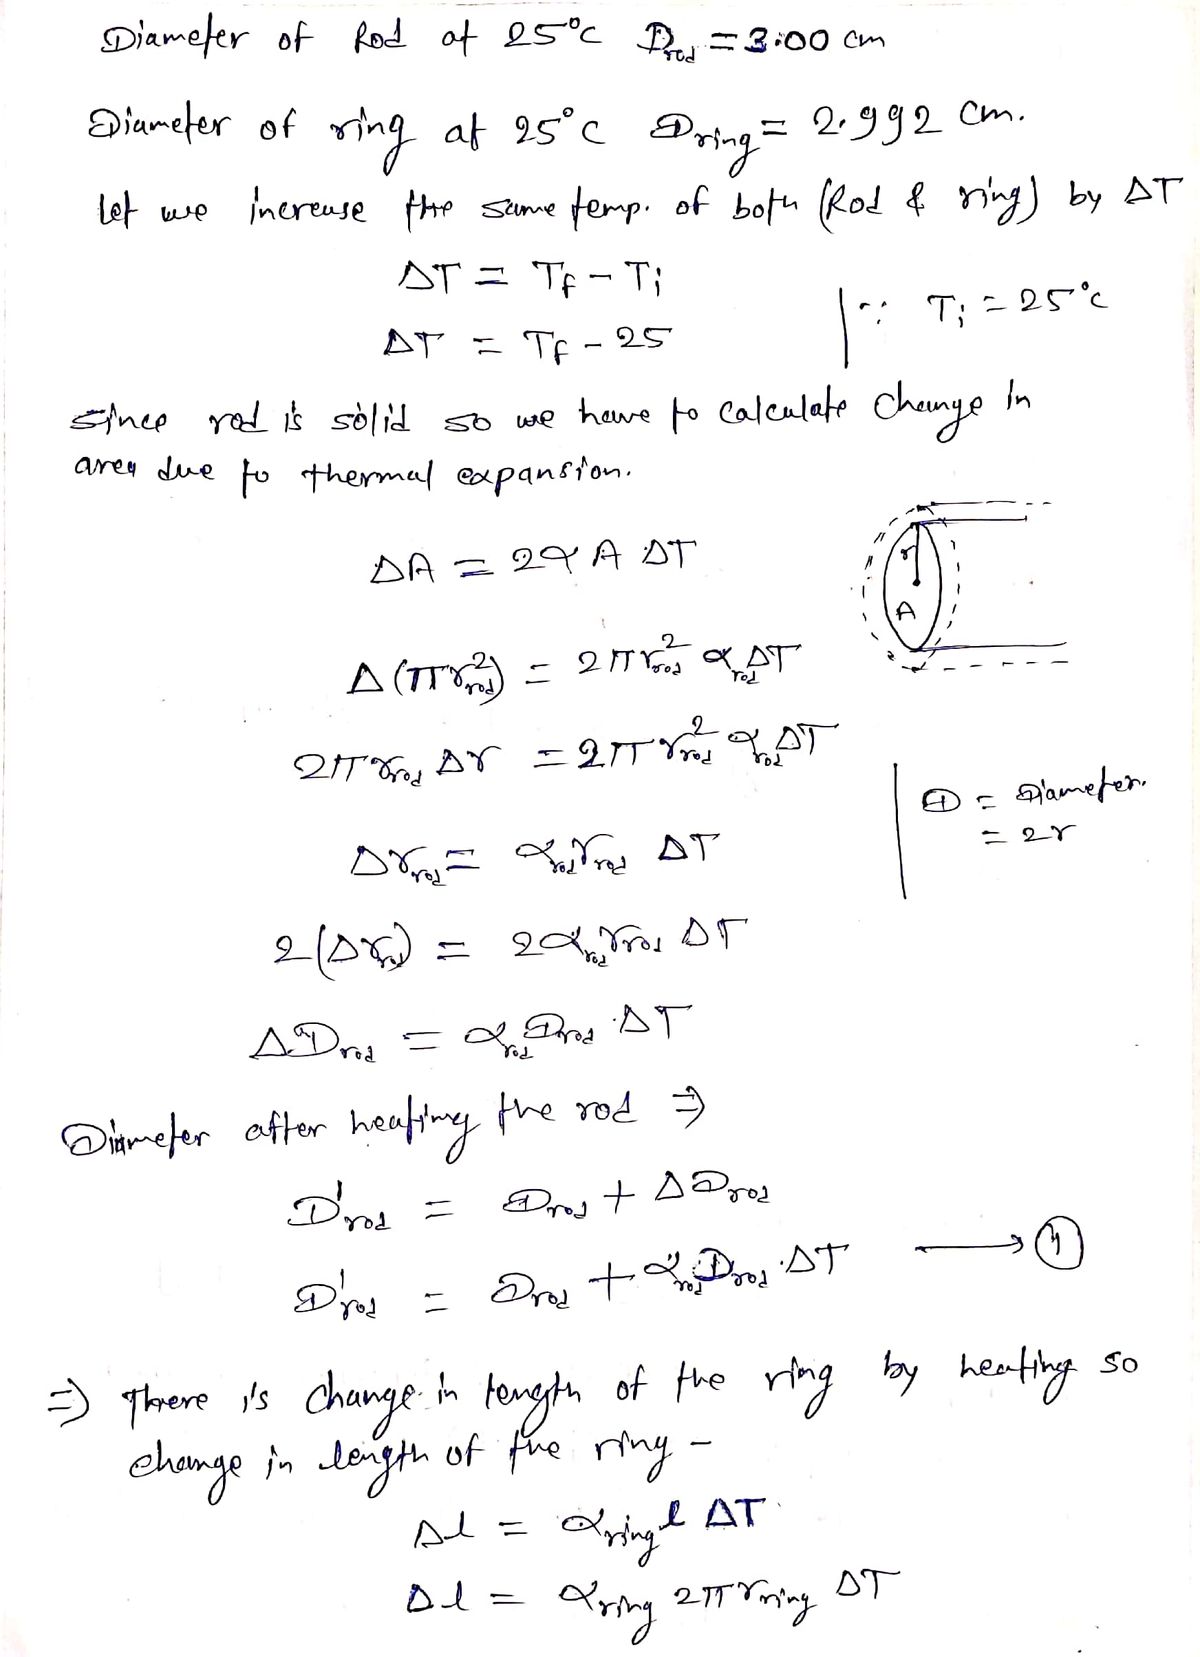 Diameter of Rod at 25°C D_rod = 3.00 cm
Diameter of ring at 25°C D_ring = 2.992 cm.
let we increase the same temp. of both (Rod & ring) by ΔT
ΔT = T_f - T_i
ΔT = T_f - 25 | ∵ T_i = 25°C
since rod is solid so we have to calculate change in
area due to thermal expansion.
ΔA = 2α A ΔT
r
A
Δ(πr²_rod) = 2πr²_rod α_rod ΔT
2πr_rod Δr = 2πr²_rod α_rod ΔT
D = Diameter.
= 2r
Δr_rod = α_rod r_rod ΔT
2(Δr_rod) = 2α_rod r_rod ΔT
ΔD_rod = α_rod D_rod ΔT
Diameter after heating the rod ⇒
D'_rod = D_rod + ΔD_rod
D'_rod = D_rod + α_rod D_rod ΔT → ①
⇒ There is change in length of the ring by heating so
change in length of the ring -
Δl = α_ring l ΔT
Δl = α_ring 2π r_ring ΔT